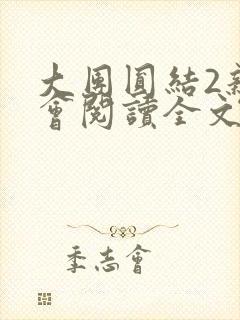 大團圓結2新
會閱讀全文
季志會